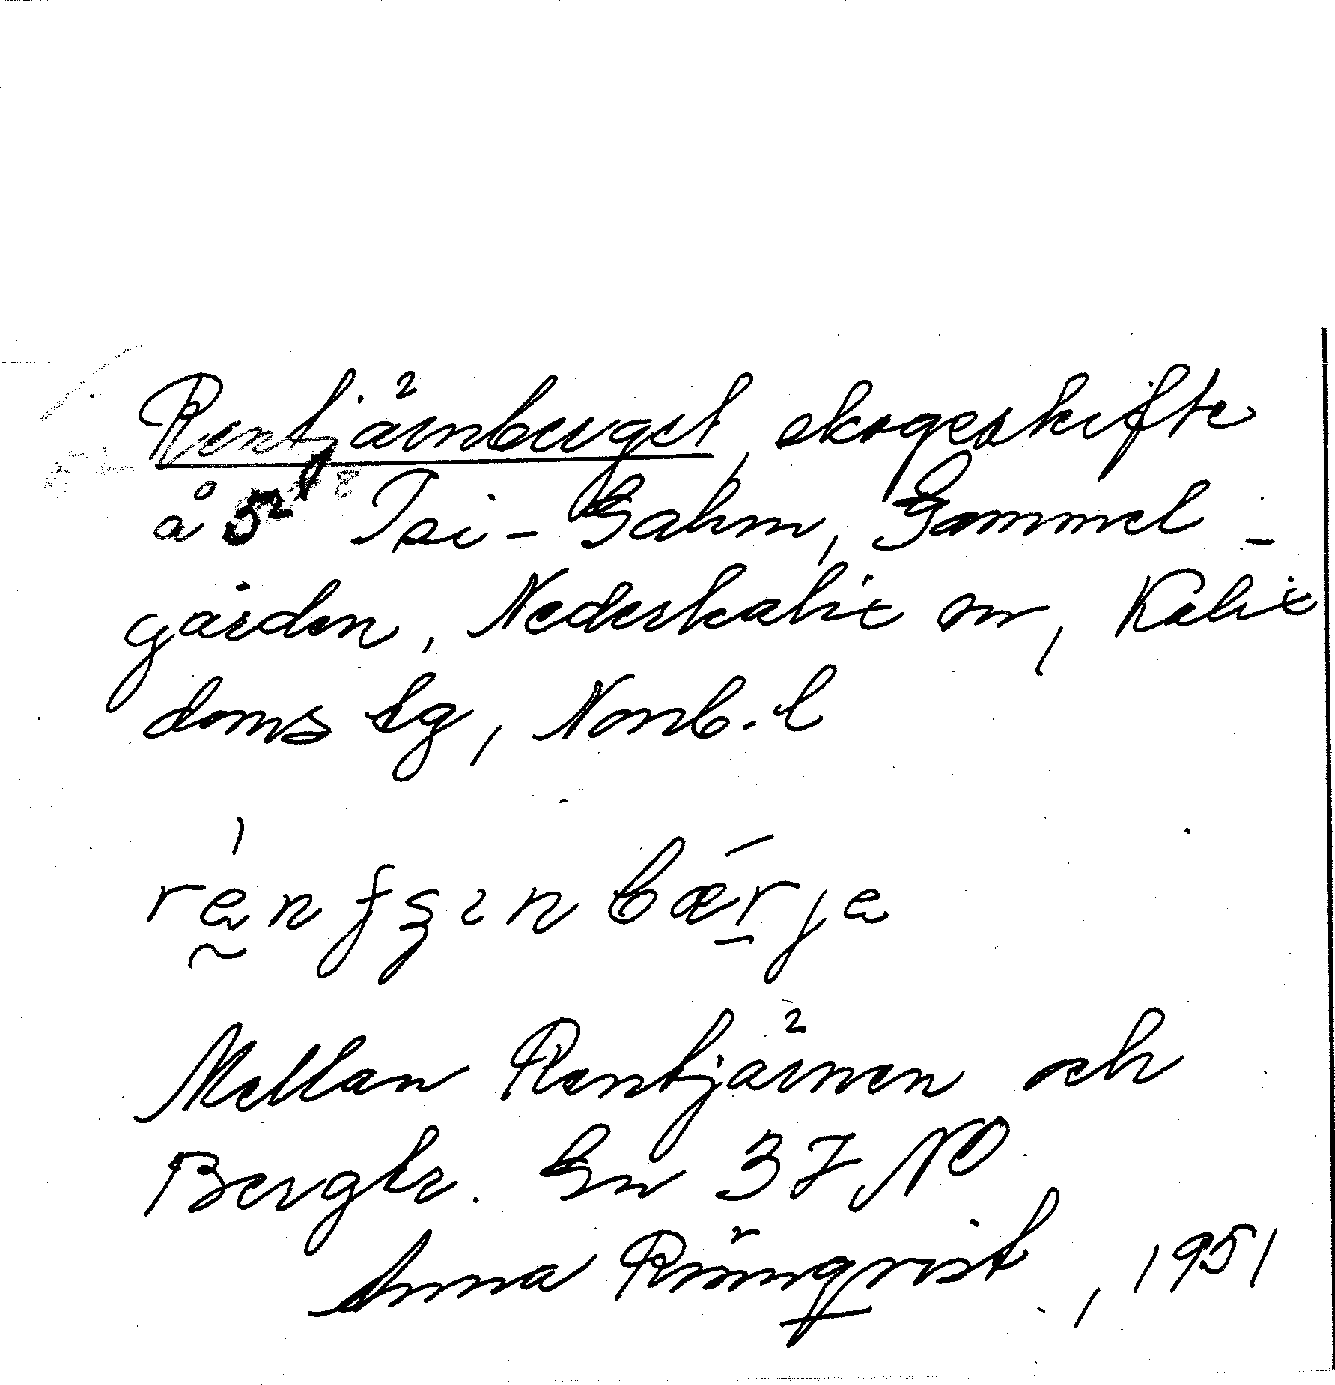 Rentjärnberget, skogsskifte
å 5² Isi-Gahm, Gammel-
gården, Nederkalix sn, Kalix
doms lg, Norrb. l
Mellan Rentjärnen och
Bergtr. En 37 NO
Anna Rönnqvist, 1951